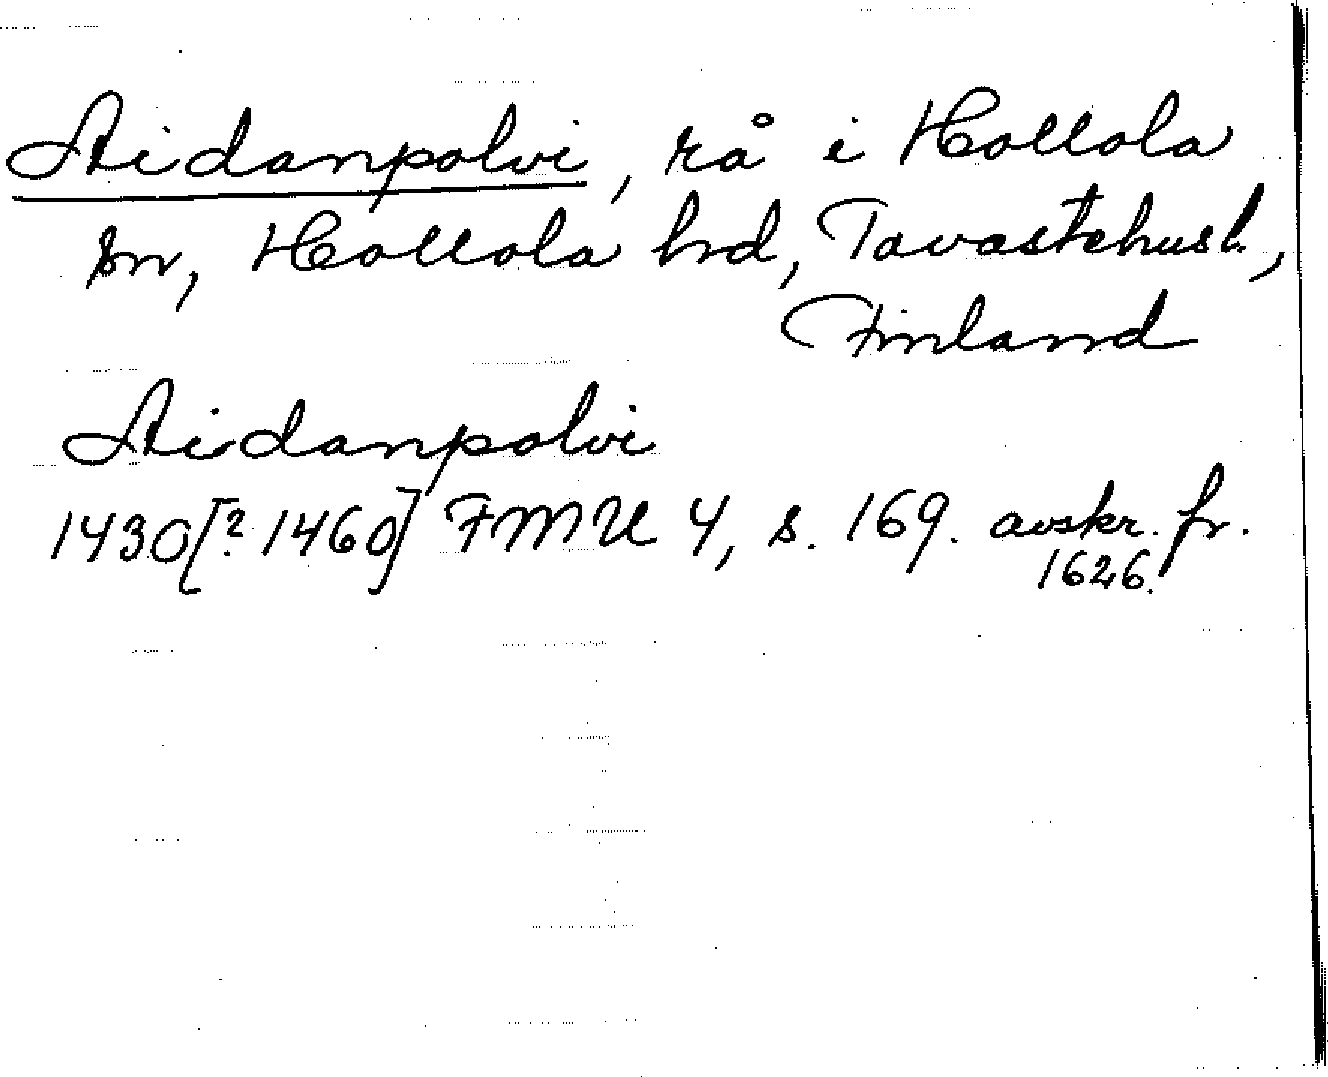 Aidanpolvi, rå i Hollola
sn, Hollola hd, Tavastehusl.,
Finland
Aidanpolvi
1430[? 1460] FMU 4, s. 169. avskr. fr.
1626.